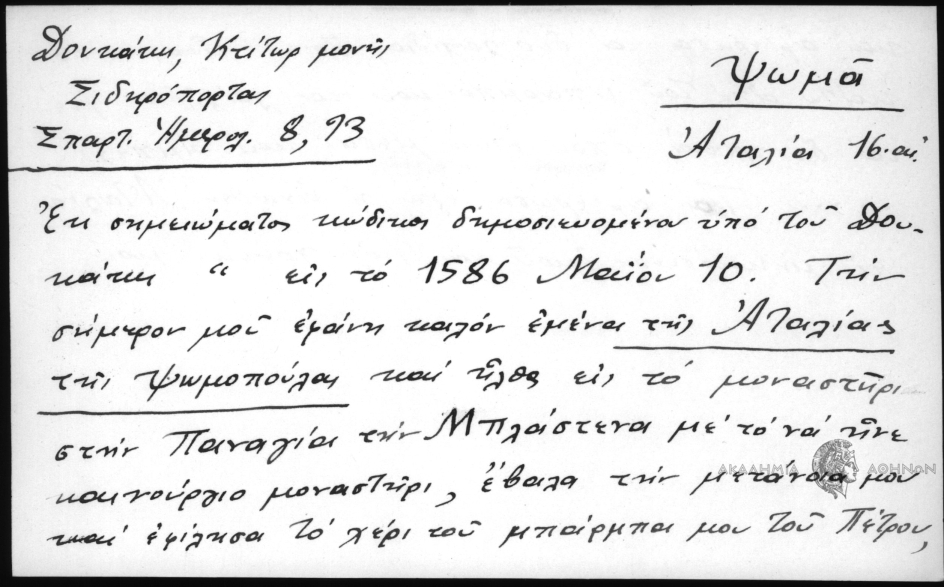 Δουκάκη, Κτίτωρ μονῆς
Σιδηρόπορτας
Σπαρτ. Ἡμερολ. 8, 93
Ψωμᾶ
Ἀταλία 16. αἰ.
Ἐκ σημειώματος κώδικος δημοσιευομένου ὑπό τοῦ Δου-
κάκη “ εἰς τό 1586 Μαΐου 10. Τήν
σήμερον μοῦ ἐφάνη καλόν ἐμένα τῆς Ἀταλίας
τῆς Ψωμοπούλας καί ἦλθα εἰς τό μοναστῆρι
στήν Παναγία τήν Μπλάστενα μέ τό νά ἦνε
καινούργιο μοναστῆρι, ἔβαλα τήν μετάνοιά μου
καί ἐφίλησα τό χέρι τοῦ μπάρμπα μου τοῦ Πέτρου,
ΑΚΑΔΗΜΙΑ ΑΘΗΝΩΝ